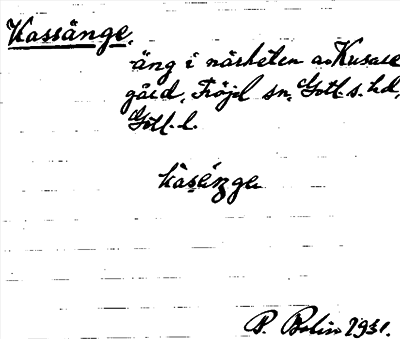 Kassänge.
äng i närheten av Kusare
gård, Fröjel sn. Gotl. s. hd,
Gotl. l.
kasänge
P. Bolin 1931.